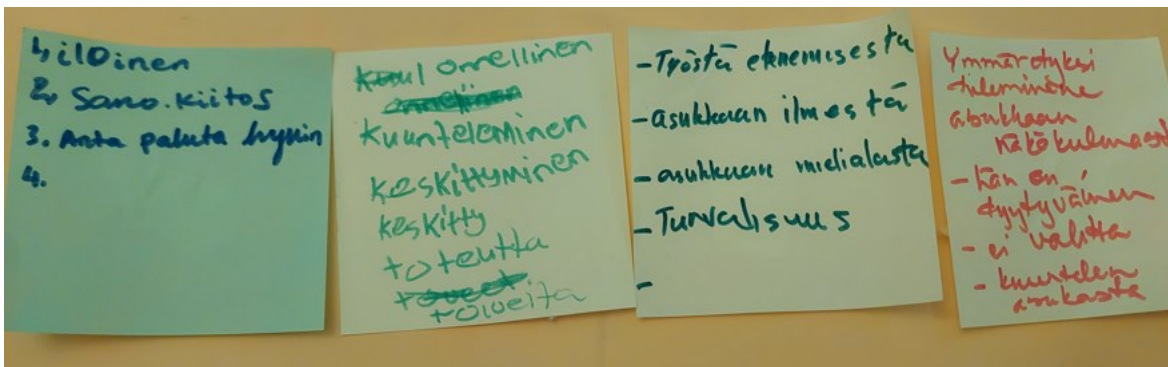 1, iloinen
2, Sano. kiitos
3. Anta paluta hyvin
4.
onnellinen
kuunteleminen
keskittyminen
keskitty
toteutta
toiveita
- Työstä eknemisesta
- asukkaan ilmestä
- asukkaan mielialasta
- Turvalisuus
-
Ymmärdyksi
tuleminene
asukkaan
näkökulmast
- hän on
dyytyväinen
- ei valitta
- kuuntelen
asukasta